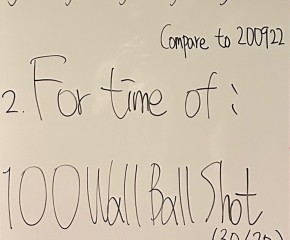 Compare to 200922
2. For time of :
100 Wall Ball Shot